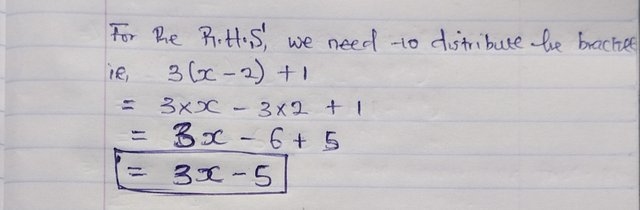 For the R.H.S, we need to distribute the bracket
ie, 3(x - 2) + 1
= 3 × x - 3 × 2 + 1
= 3x - 6 + 5
= 3x - 5